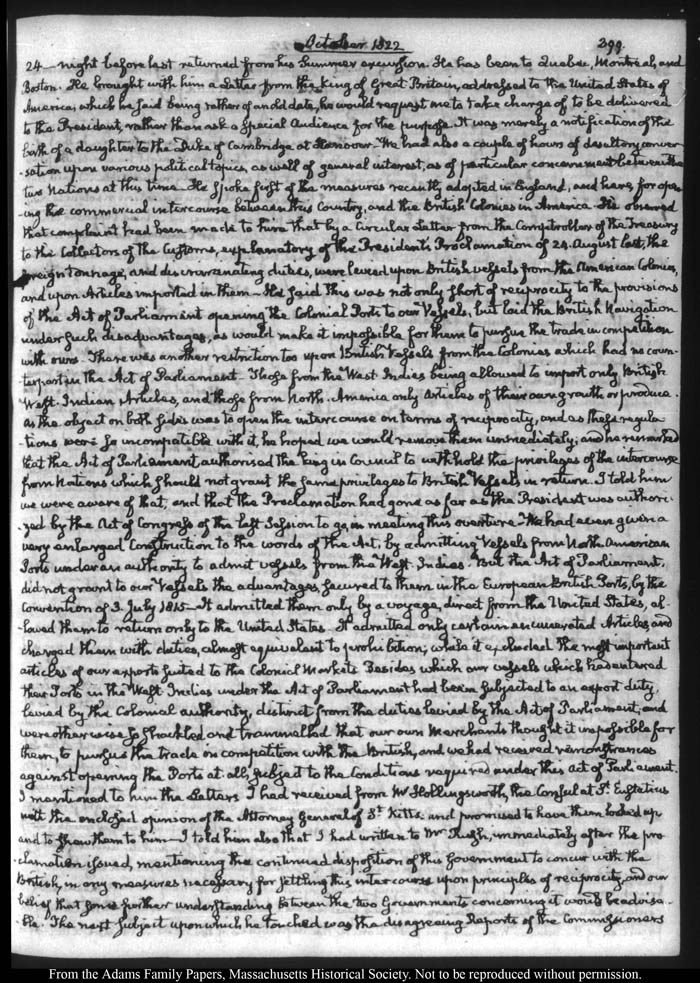 October 1822
399.
24 night before last returned from his Summer excursion. He has been to Quebec, Montreal, and
Boston. He brought with him a Letter from the King of Great Britain, addressed to the United States of
America; which he said being rather of an old date, he would request me to take charge of, to be delivered
to the President, rather than ask a special Audience for the purpose. It was merely a notification of the
birth of a daughter to the Duke of Cambridge at Hanover. We had also a couple of hours of desultory conver
-sation upon various political topics, as well of general interest, as of particular concernment between the
two Nations at this time. He spoke first of the measures recently adopted in England, and here, for open
ing the commercial intercourse between this Country, and the British Colonies in America. He observed
that complaint had been made to him that by a Circular Letter from the Comptroller of the Treasury
to the Collectors of the Customs, explanatory of the President's Proclamation of 24. August last, the
foreign tonnage, and discriminating duties, were levied upon British vessels from the American Colonies,
and upon Articles imported in them. He said this was not only short of reciprocity to the provisions
of the Act of Parliament opening the Colonial Ports to our Vessels, but laid the British Navigation
under such disadvantages, as would make it impossible for them to pursue the trade in competition
with ours. There was another restriction too upon British Vessels from the Colonies which had no coun
terpart in the Act of Parliament. Those from the West Indies being allowed to import only British
West-Indian Articles, and those from North-America only Articles of their own growth or produce.
As the object on both sides was to open the intercourse on terms of reciprocity, and as these regula
-tions were so incompatible with it, he hoped we would remove them immediately; and he remarked
that the Act of Parliament authorised the King in Council to withhold the privileges of the intercourse
from Nations which should not grant the same privileges to British Vessels in return. I told him
we were aware of that, and that the Proclamation had gone as far as the President was authori
-zed by the Act of Congress of the last Session to go, in meeting this overture. We had even given a
very enlarged Construction to the words of the Act, by admitting Vessels from North American
Ports under an authority to admit vessels from the West-Indies. But the Act of Parliament,
did not grant to our Vessels the advantages, secured to them in the European British Ports, by the
Convention of 3. July 1815— It admitted them only by a voyage, direct from the United States, al
-lowed them to return only to the United States. It admitted only certain enumerated Articles, and
charged them with duties, almost equivalent to prohibition; while it excluded the most important
articles of our exports suited to the Colonial Markets. Besides which our vessels which had entered
their Ports in the West Indies under the Act of Parliament had been subjected to an export duty,
levied by the Colonial authority, distinct from the duties levied by the Act of Parliament, and
were otherwise so shackled and trammelled that our own Merchants thought it impossible for
them, to pursue the trade in competition with the British, and we had received remonstrances
against opening the Ports at all, subject to the Conditions required under this Act of Parliament.
I mentioned to him the Letters I had received from Mr Hollingsworth, the Consul at St. Eustatius
with the enclosed opinion of the Attorney General of St Kitts and promised to have them looked up
and to shew them to him— I told him also that I had written to Mr Rush, immediately after the pro
-clamation issued, mentioning the continued disposition of this Government to concur with the
British, in any measures necessary for settling this intercourse upon principles of reciprocity, and our
belief that some further understanding between the two Governments concerning it would be advisa
-ble. The next subject upon which he touched was the disagreeing Reports of the Commissioners
From the Adams Family Papers, Massachusetts Historical Society. Not to be reproduced without permission.